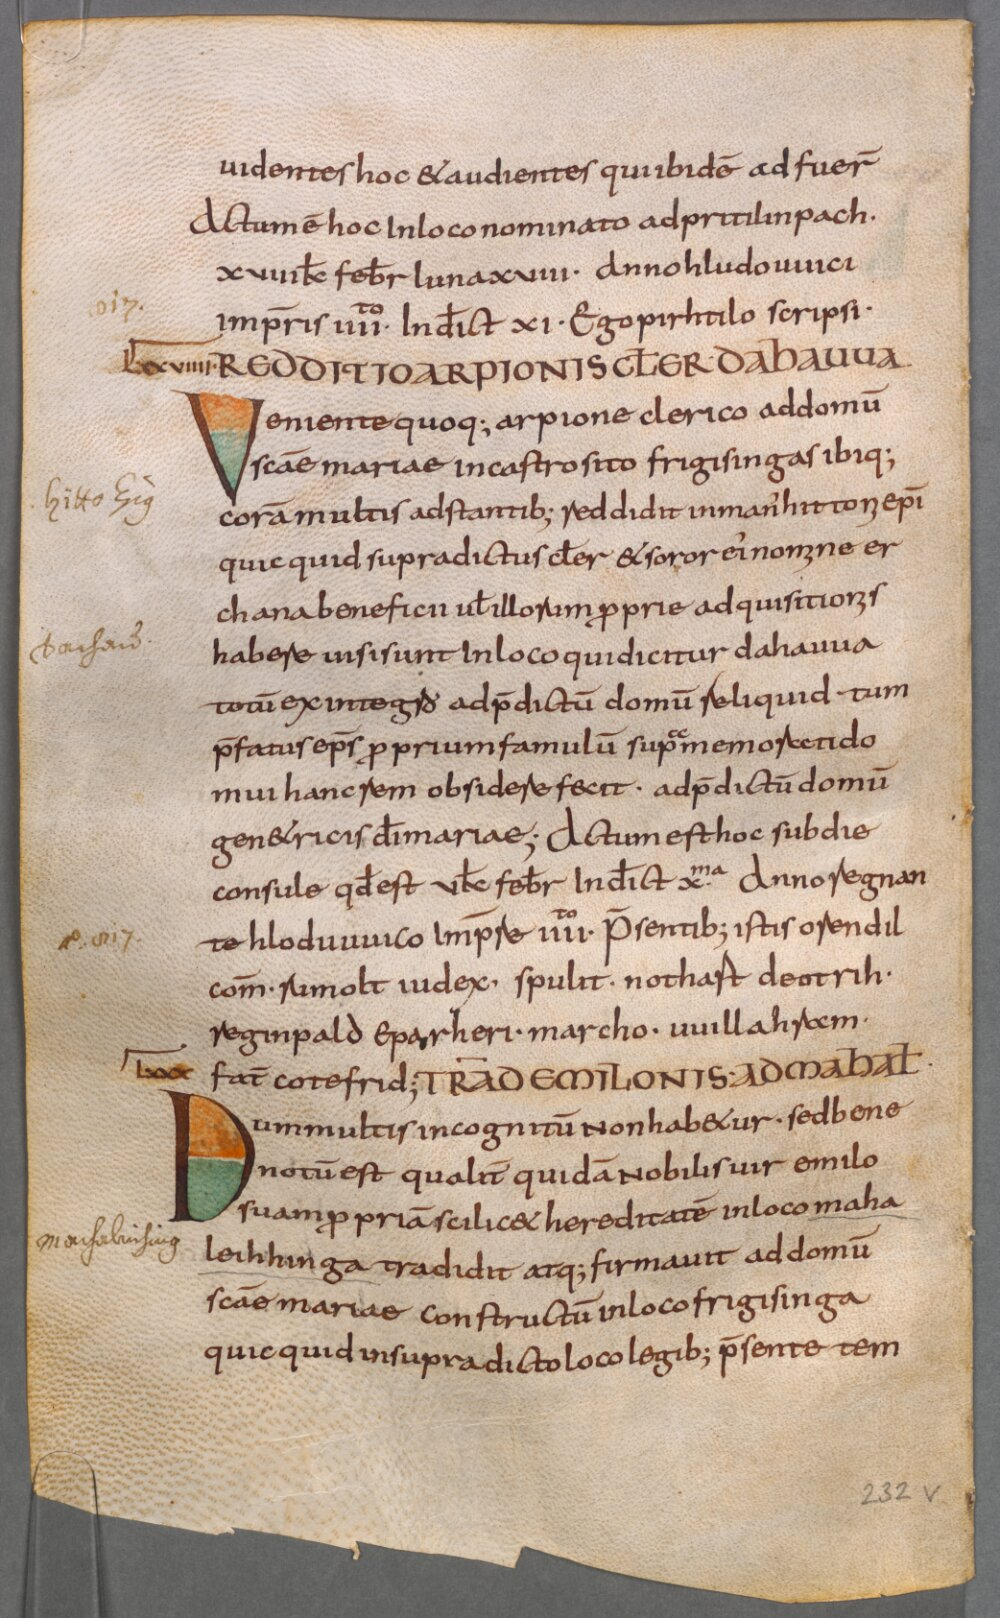 uidentes hoc & audientes qui ibidē ad fuer̄
Actum ē hoc In loco nominato ad pritilinpach.
xviii kł febr̄ luna xviii. Anno hludouuici
017.
imp̄ris iiii.to Ind̄ict xi. Ego pirhtilo scripsi.
Lxxviiii. REDDITIO ARPIONIS CŁER. DAHAUUA
Veniente quoq; arpione clerico ad domū
scāe mariae in castro sito frigisingas ibiq;
hitto
corā multis adstantib; reddidit in man' hittonis epī
quicquid supradictus cłer & soror ei' nomine er
chana beneficii uł illorum p̱prie adquisitionis
dachaw.
habere uisi sunt In loco qui dicitur dahauua
totū ex integro ad p̄dictū domū reliquid. tum
p̄fatus ep̄s p̱prium famulū sup̄ememorati do
mui hanc rem obsidere fecit. ad p̄dictū domū
gen&ricis d̄i mariae; Actum est hoc sub die
consule qd̄ est vi kł febr̄ Ind̄ict x.ma Anno regnan
.017.
te hloduuuico Imp̄re iiii.to P̄sentib; istis orendil
com̄. rimolt iudex. spulit. nothaft deotrih.
reginpald Eparheri. marcho. uuillahelm.
Lxxx
fat̄ cotefrid; TRAD EMILONIS. AD MAHAŁ.
Dum multis incognitū Non hab&ur. sed bene
notū est qualit̄ quidā Nobilis uir emilo
suam p̱priā scilic& hereditatē in loco maha
machalnihing
leihhinga tradidit atq; firmauit ad domū
scāe mariae constructū in loco frigisinga
quicquid in supradicto loco legib; p̄sente tem
232 v